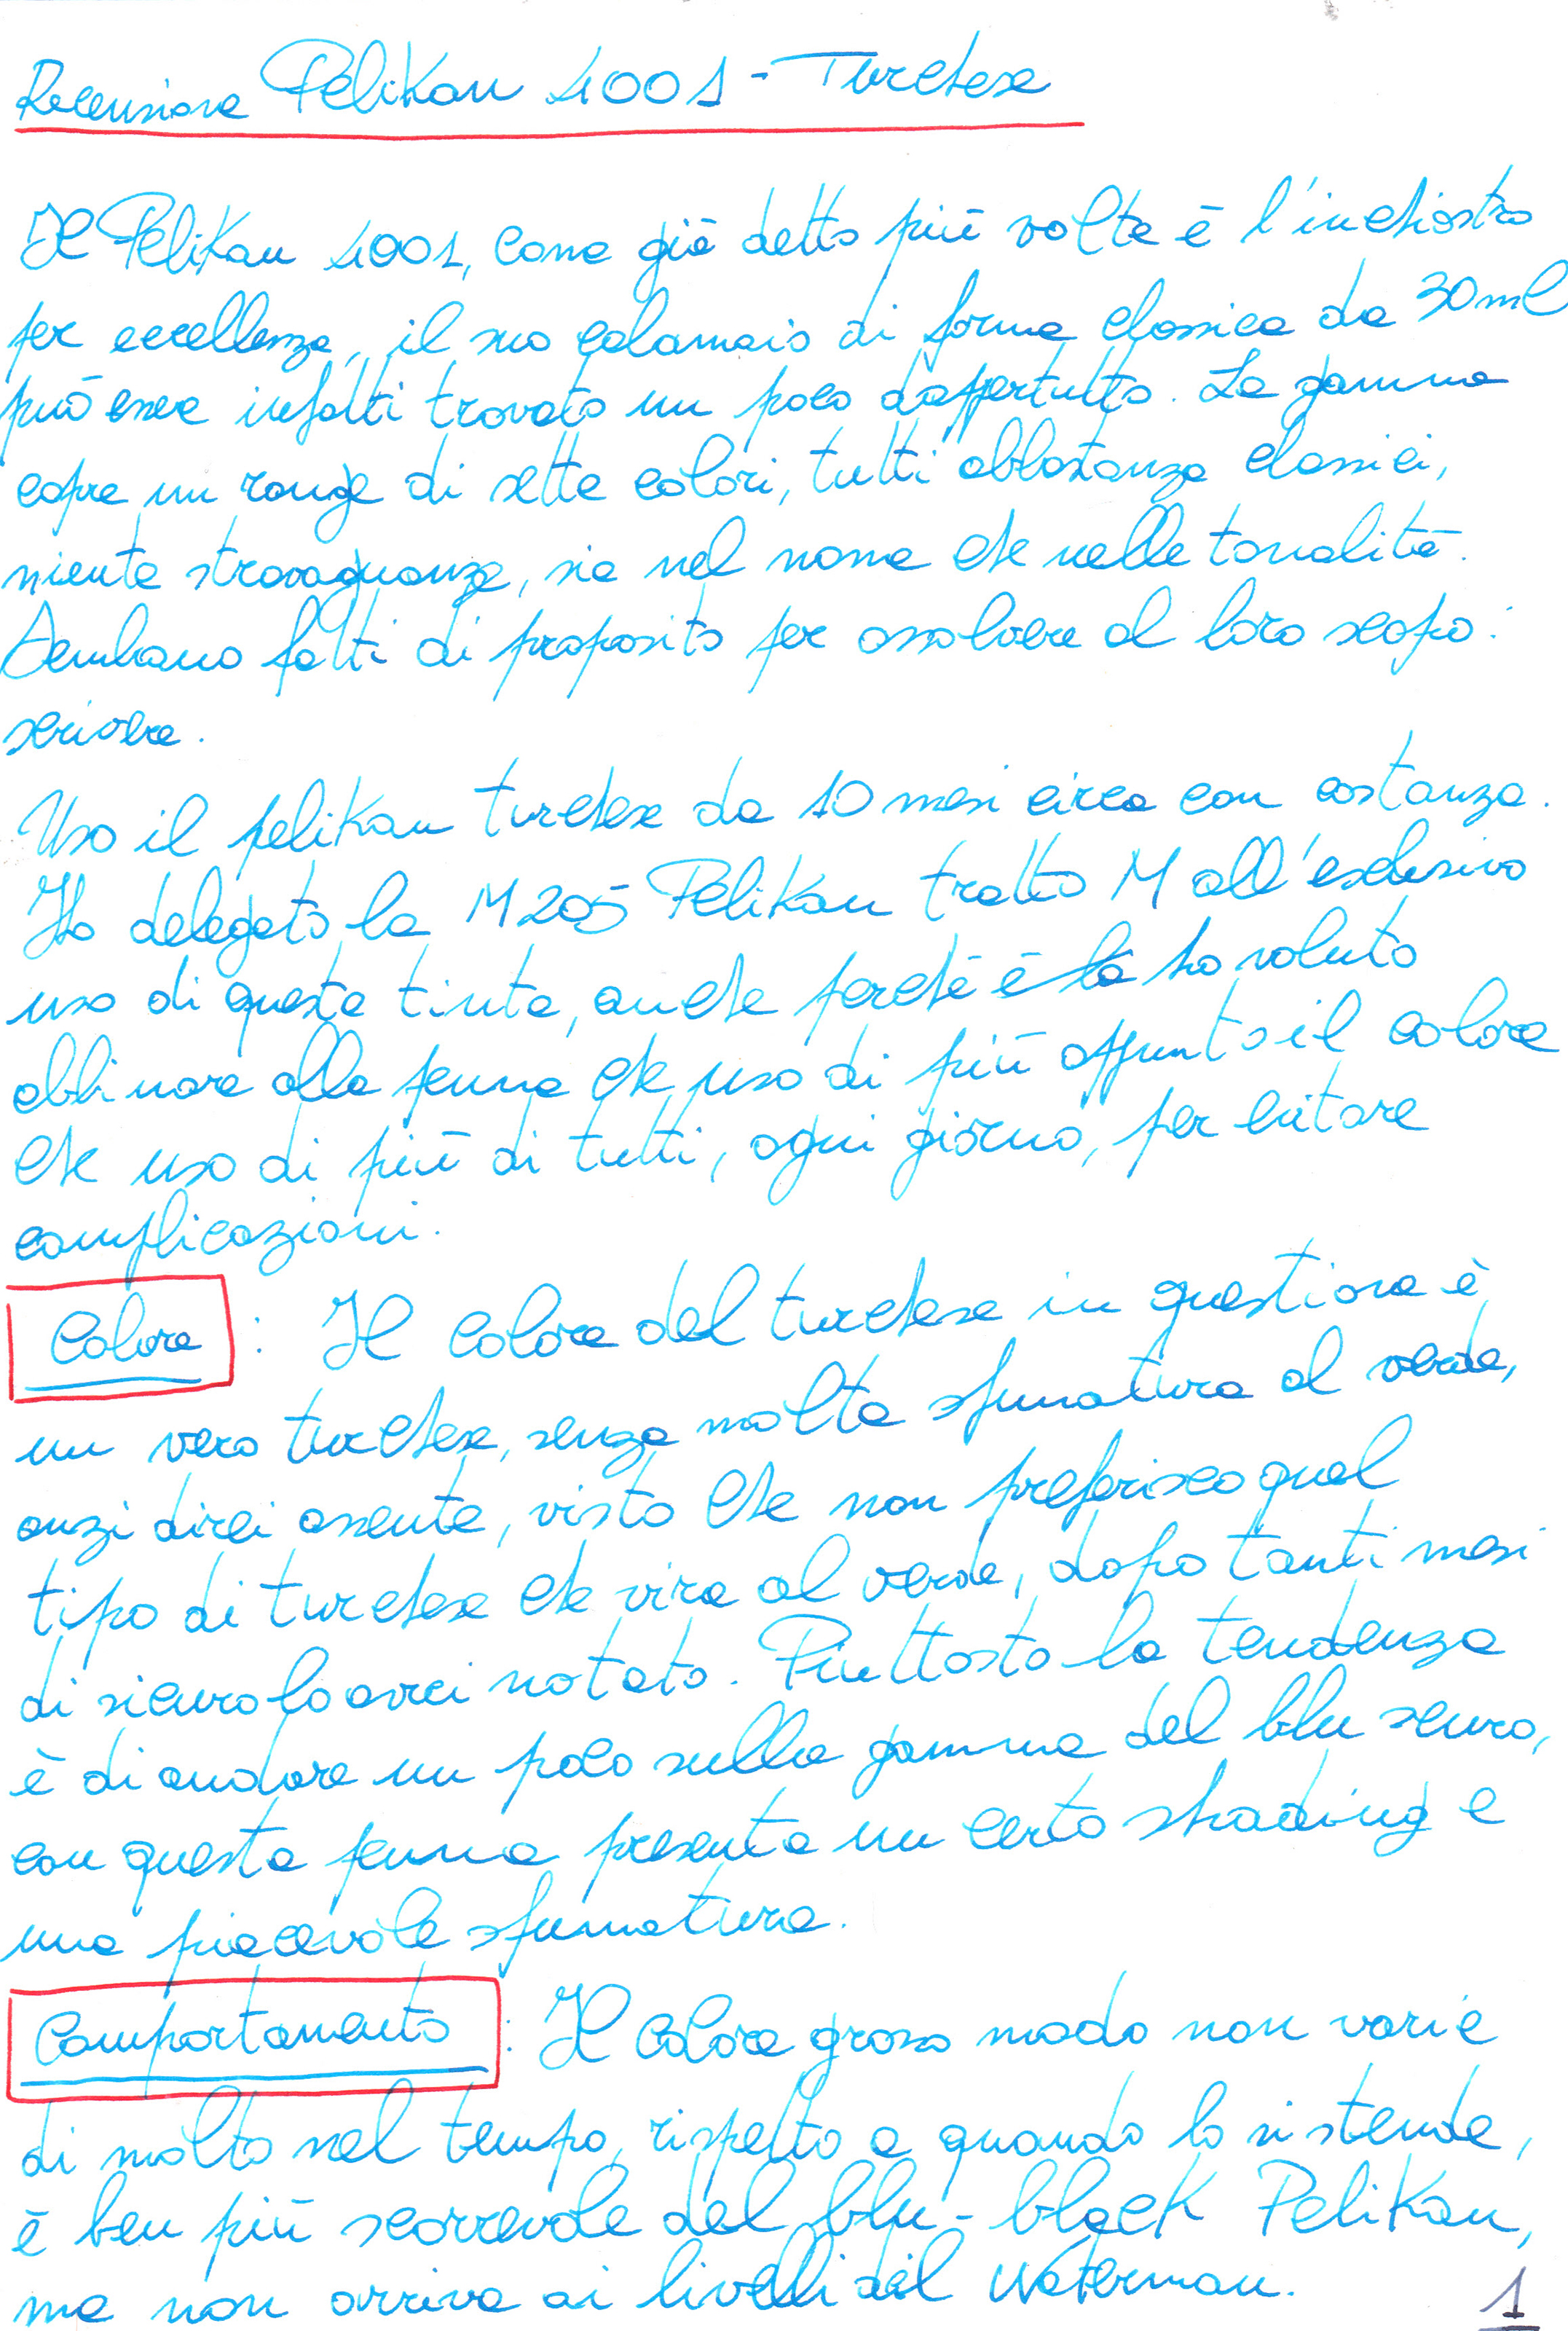 Recensione Pelikan 4001 - Turchese
Il Pelikan 4001, come già detto più volte è l'inchiostro
per eccellenza, il suo calamaio di forma classica da 30ml
può essere infatti trovato un poco dappertutto. La gamma
copre un range di sette colori, tutti abbastanza classici,
niente stravaganze, sia nel nome che nelle tonalità.
Sembrano fatti di proposito per assolvere al loro scopo:
scrivere.
Uso il pelikan turchese da 10 mesi circa con costanza.
Ho delegato la M205 Pelikan tratto M all'esclusivo
uso di questa tinta, anche perché è la ho voluto
abbinare alla penna che uso di più appunto il colore
che uso di più di tutti, ogni giorno, per evitare
complicazioni.
Colore: Il colore del turchese in questione è
un vero turchese, senza molta sfumatura al verde,
anzi direi assente, visto che non preferisco quel
tipo di turchese che vira al verde, dopo tanti mesi
di sicuro lo avrei notato. Piuttosto la tendenza
è di andare un poco sulla gamma del blu scuro,
con questa penna presenta un certo shading e
una piacevole sfumatura.
Comportamento: Il colore grosso modo non varia
di molto nel tempo, rispetto a quando lo si stende,
è ben più scorrevole del blu-black Pelikan,
ma non arriva ai livelli del Waterman.
1